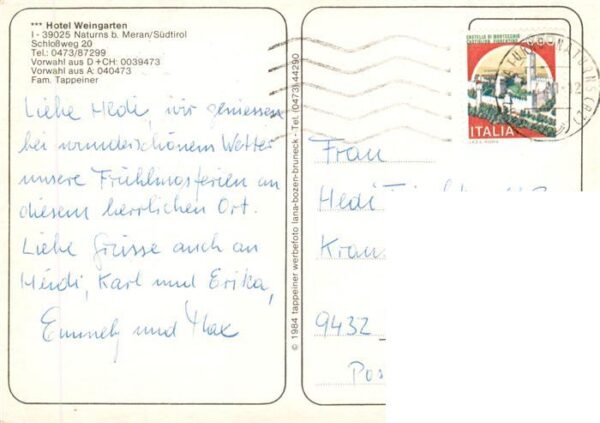 *** Hotel Weingarten
I - 39025 Naturns b. Meran/Südtirol
Schloßweg 20
Tel.: 0473/87299
Vorwahl aus D + CH: 0039473
Vorwahl aus A: 040473
Fam. Tappeiner
Liebe Hedi, wir geniessen
bei wunderschönem Wetter
unsere Frühlingsferien an
diesem herrlichen Ort.
Liebe Grüsse auch an
Heidi, Karl und Erika,
und Max
© 1984 tappeiner werbefoto lana-bozen-bruneck - Tel. (0473) 44290
CASTELLO DI MONTECCHIO
CASTIGLION FIORENTINO
ITALIA
Frau
Hedi
9432